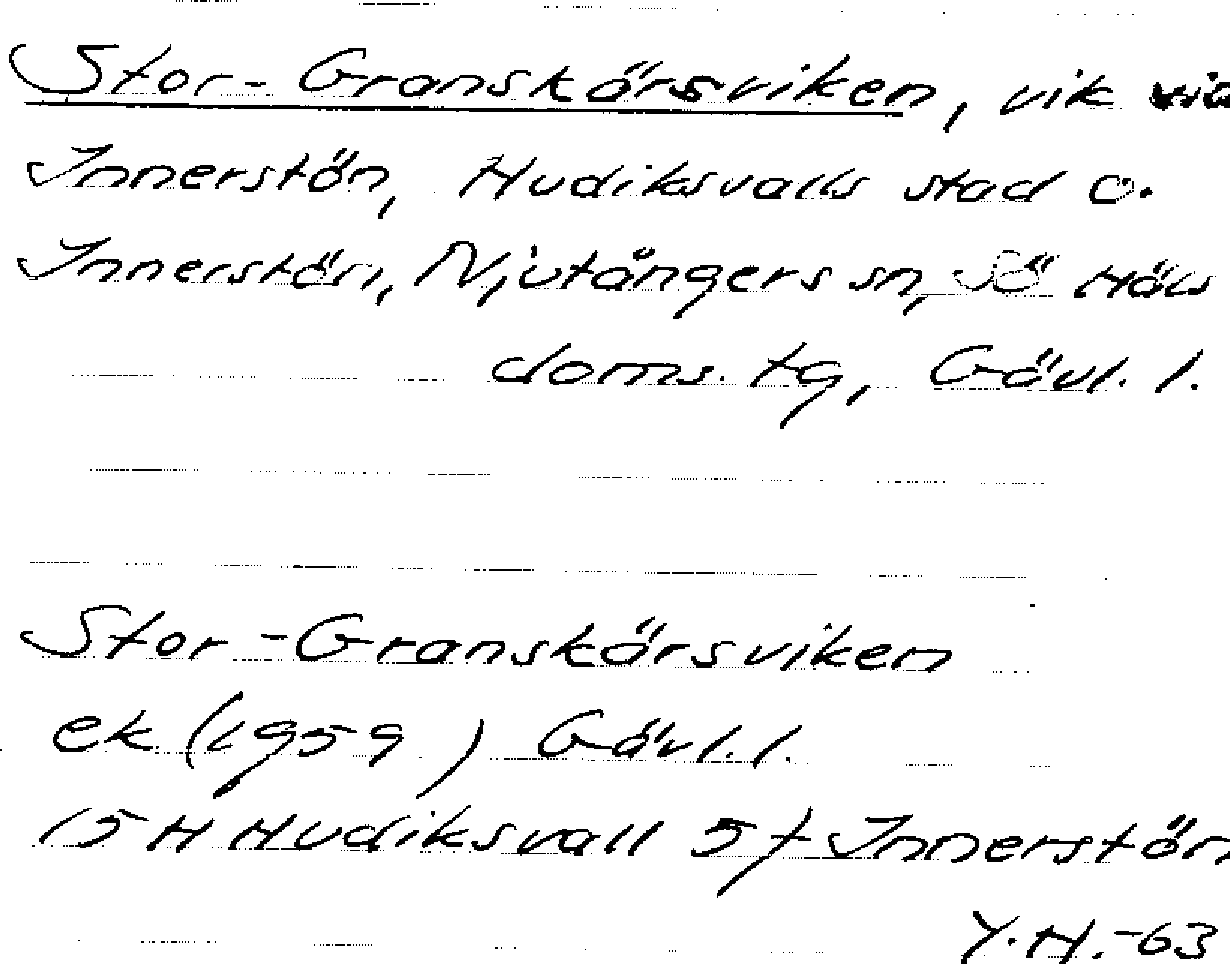 Stor-Granskärsviken, vik vid
Innerstön, Hudiksvalls stad o.
Innerstön, Njutångers sn, Sö Häls
doms. tg, Gävl. l.
Stor-Granskärsviken
ek (1959) Gävl. l.
15 H Hudiksvall 5f Innerstön
Y.H.-63